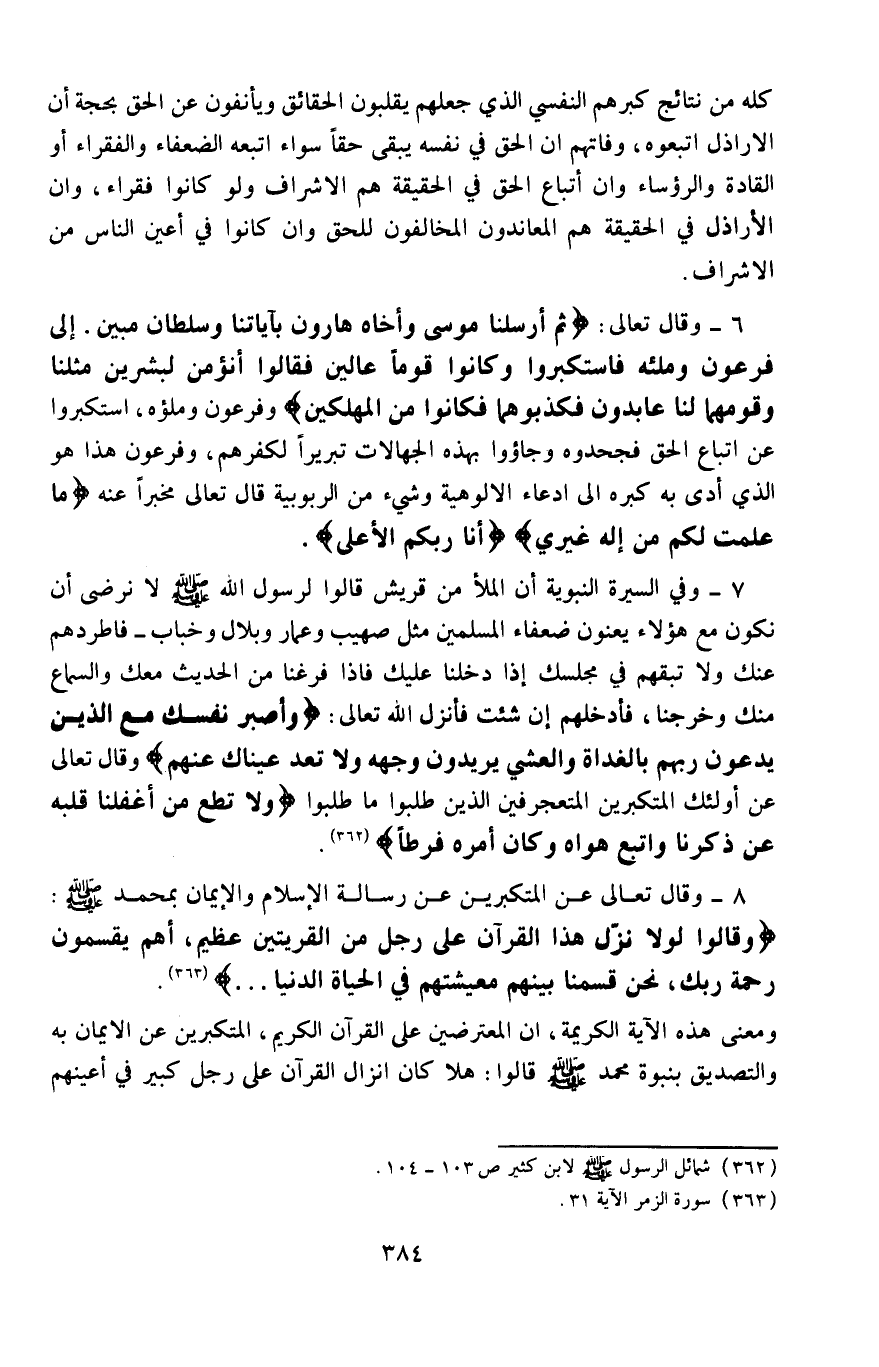 كله من نتائج كبرهم النفسي الذي جعلهم يقلبون الحقائق ويأنفون عن الحق بحجة أن
الاراذل اتبعوه، وفاتهم ان الحق في نفسه يبقى حقاً سواء اتبعه الضعفاء والفقراء أو
القادة والرؤساء وان أتباع الحق في الحقيقة هم الاشراف ولو كانوا فقراء، وان
الأراذل في الحقيقة هم المعاندون المخالفون للحق وان كانوا في أعين الناس من
الاشراف.
٦ - وقال تعالى: ﴿ثم أرسلنا موسى وأخاه هارون بآياتنا وسلطان مبين. إلى
فرعون وملئه فاستكبروا وكانوا قوماً عالين فقالوا أنؤمن لبشرين مثلنا
وقومهما لنا عابدون فكذبوهما فكانوا من المهلكين﴾ وفرعون وملؤه، استكبروا
عن اتباع الحق فجحدوه وجاؤوا بهذه الجهالات تبريراً لكفرهم، وفرعون هذا هو
الذي أدى به كبره الى ادعاء الالوهية وشيء من الربوبية قال تعالى مخبراً عنه ﴿ما
علمت لكم من إله غيري﴾ ﴿أنا ربكم الأعلى﴾.
٧ - وفي السيرة النبوية أن الملأ من قريش قالوا لرسول الله ﷺ لا نرضى أن
نكون مع هؤلاء يعنون ضعفاء المسلمين مثل صهيب وعمار وبلال وخباب - فاطردهم
عنك ولا تبقهم في مجلسك إذا دخلنا عليك فاذا فرغنا من الحديث معك والسماع
منك وخرجنا، فأدخلهم إن شئت فأنزل الله تعالى: ﴿وأصبر نفسك مع الذين
يدعون ربهم بالغداة والعشي يريدون وجهه ولا تعد عيناك عنهم﴾ وقال تعالى
عن أولئك المتكبرين المتعجرفين الذين طلبوا ما طلبوا ﴿ولا تطع من أغفلنا قلبه
عن ذكرنا واتبع هواه وكان أمره فرطاً﴾ (٣٦٢).
٨ - وقال تعالى عن المتكبرين عن رسالة الإسلام والإيمان بمحمد ﷺ:
﴿وقالوا لولا نزّل هذا القرآن على رجل من القريتين عظيم، أهم يقسمون
رحمة ربك، نحن قسمنا بينهم معيشتهم في الحياة الدنيا ...﴾ (٣٦٣).
ومعنى هذه الآية الكريمة، ان المعترضين على القرآن الكريم، المتكبرين عن الايمان به
والتصديق بنبوة محمد ﷺ قالوا: هلا كان انزال القرآن على رجل كبير في أعينهم
(٣٦٢) شمائل الرسول ﷺ لابن كثير ص١٠٣ - ١٠٤.
(٣٦٣) سورة الزمر الآية ٣١.
٣٨٤